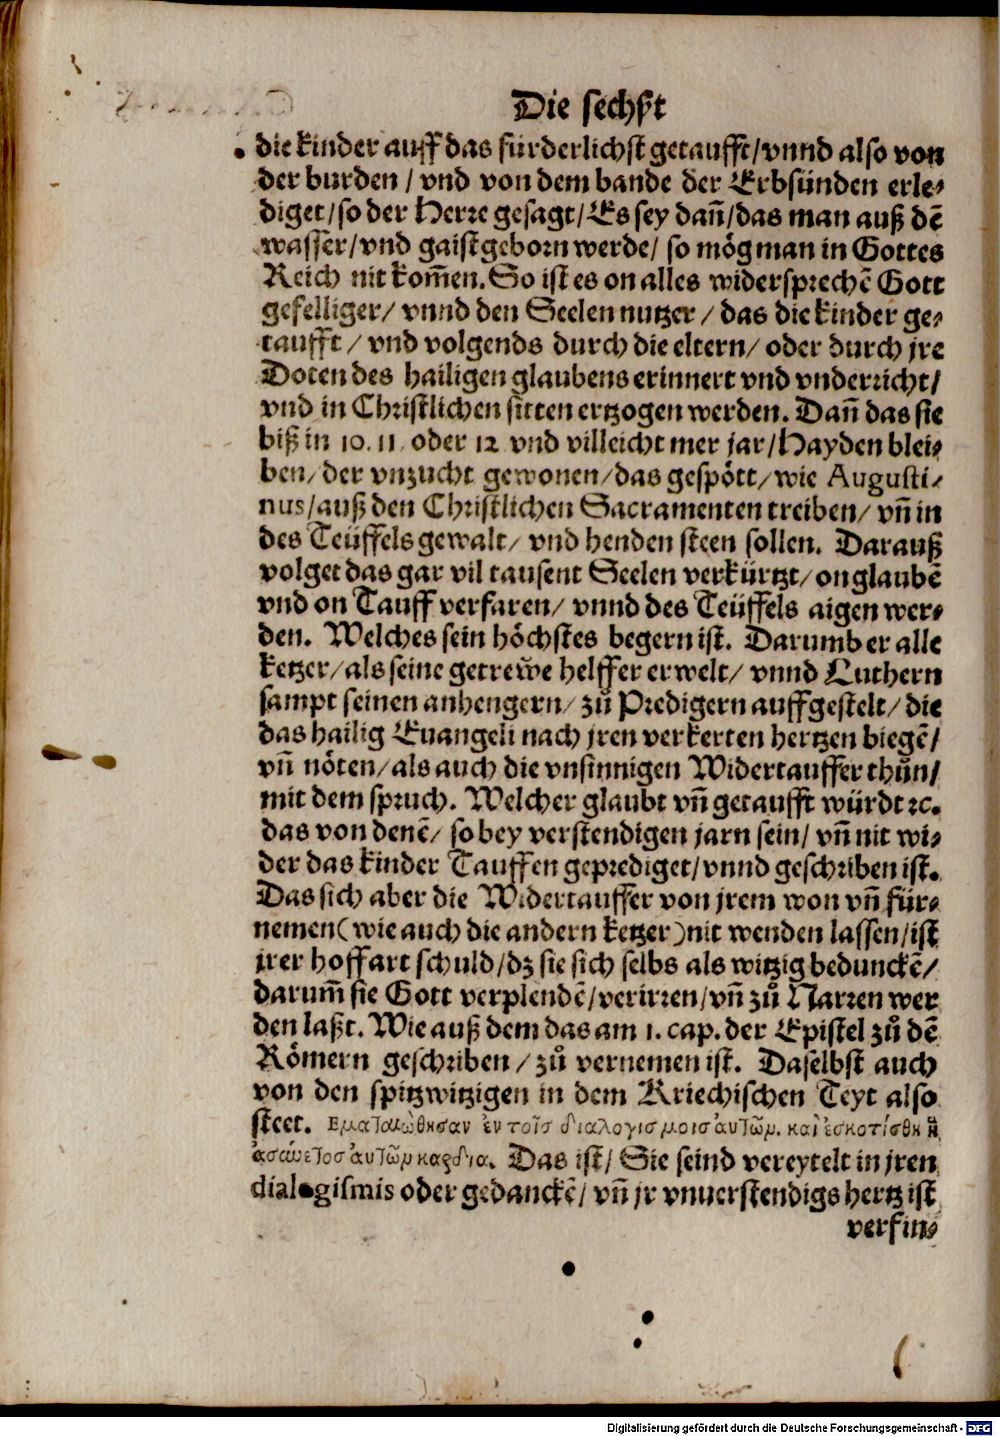 Die sechst
die kinder auff das fürderlichst getaufft/vnnd also von
der burden / vnd von dem bande der Erbsünden erle⸗
diget/so der Herre gesagt/Es sey dañ/das man auß dẽ
wasser/vnd gaist geborn werde/ so mög man in Gottes
Reich nit kom̃en. So ist es on alles widersprechẽ Gott
gefelliger/ vnnd den Seelen nutzer / das die kinder ge⸗
taufft / vnd volgends durch die eltern/ oder durch jre
Doten des hailigen glaubens erinnert vnd vnderricht/
vnd in Christlichen sitten ertzogen werden. Dañ das sie
biß in 10. 11 oder 12 vnd villeicht mer jar/Hayden blei⸗
ben/ der vnzucht gewonen/das gespött/wie Augusti⸗
nus/auß den Christlichen Sacramenten treiben/ vñ in
des Teüffels gewalt/ vnd henden steen sollen. Darauß
volget das gar vil tausent Seelen verkürtzt/on glaubẽ
vnd on Tauff verfaren/ vnnd des Teüffels aigen wer⸗
den. Welches sein höchstes begern ist. Darumb er alle
ketzer/als seine getrewe helffer erwelt/ vnnd Luthern
sampt seinen anhengern/ zů Predigern auffgestelt/ die
das hailig Euangeli nach jren verkerten hertzen biegẽ/
vñ nöten/als auch die vnsinnigen Widertauffer thůn/
mit dem spruch. Welcher glaubt vñ getaufft würdt ꝛc.
das von denẽ/ so bey verstendigen jarn sein/ vñ nit wi⸗
der das kinder Tauffen geprediget/vnnd geschriben ist.
Das sich aber die Widertauffer von jrem won vñ für⸗
nemen(wie auch die andern ketzer)nit wenden lassen/ist
jrer hoffart schuld/dz sie sich selbs als witzig bedunckẽ/
darum̃ sie Gott verplendẽ/verirren/vñ zů Narren wer
den laßt. Wie auß dem das am 1. cap. der Epistel zů dẽ
Römern geschriben / zů vernemen ist. Daselbst auch
von den spitzwitzigen in dem Kriechischen Teyt also
steet. Εματαιώθησαν ἐν τοῖς διαλογισμοις ἀυτῶμ. καὶ ἐσκοτίσθη ἡ
ἀσύνετος ἀυτῶμ καρδια. Das ist/ Sie seind vereytelt in jren
dialogismis oder gedanckẽ/ vñ jr vnuerstendigs hertz ist
verfin⸗
Digitalisierung gefördert durch die Deutsche Forschungsgemeinschaft - DFG